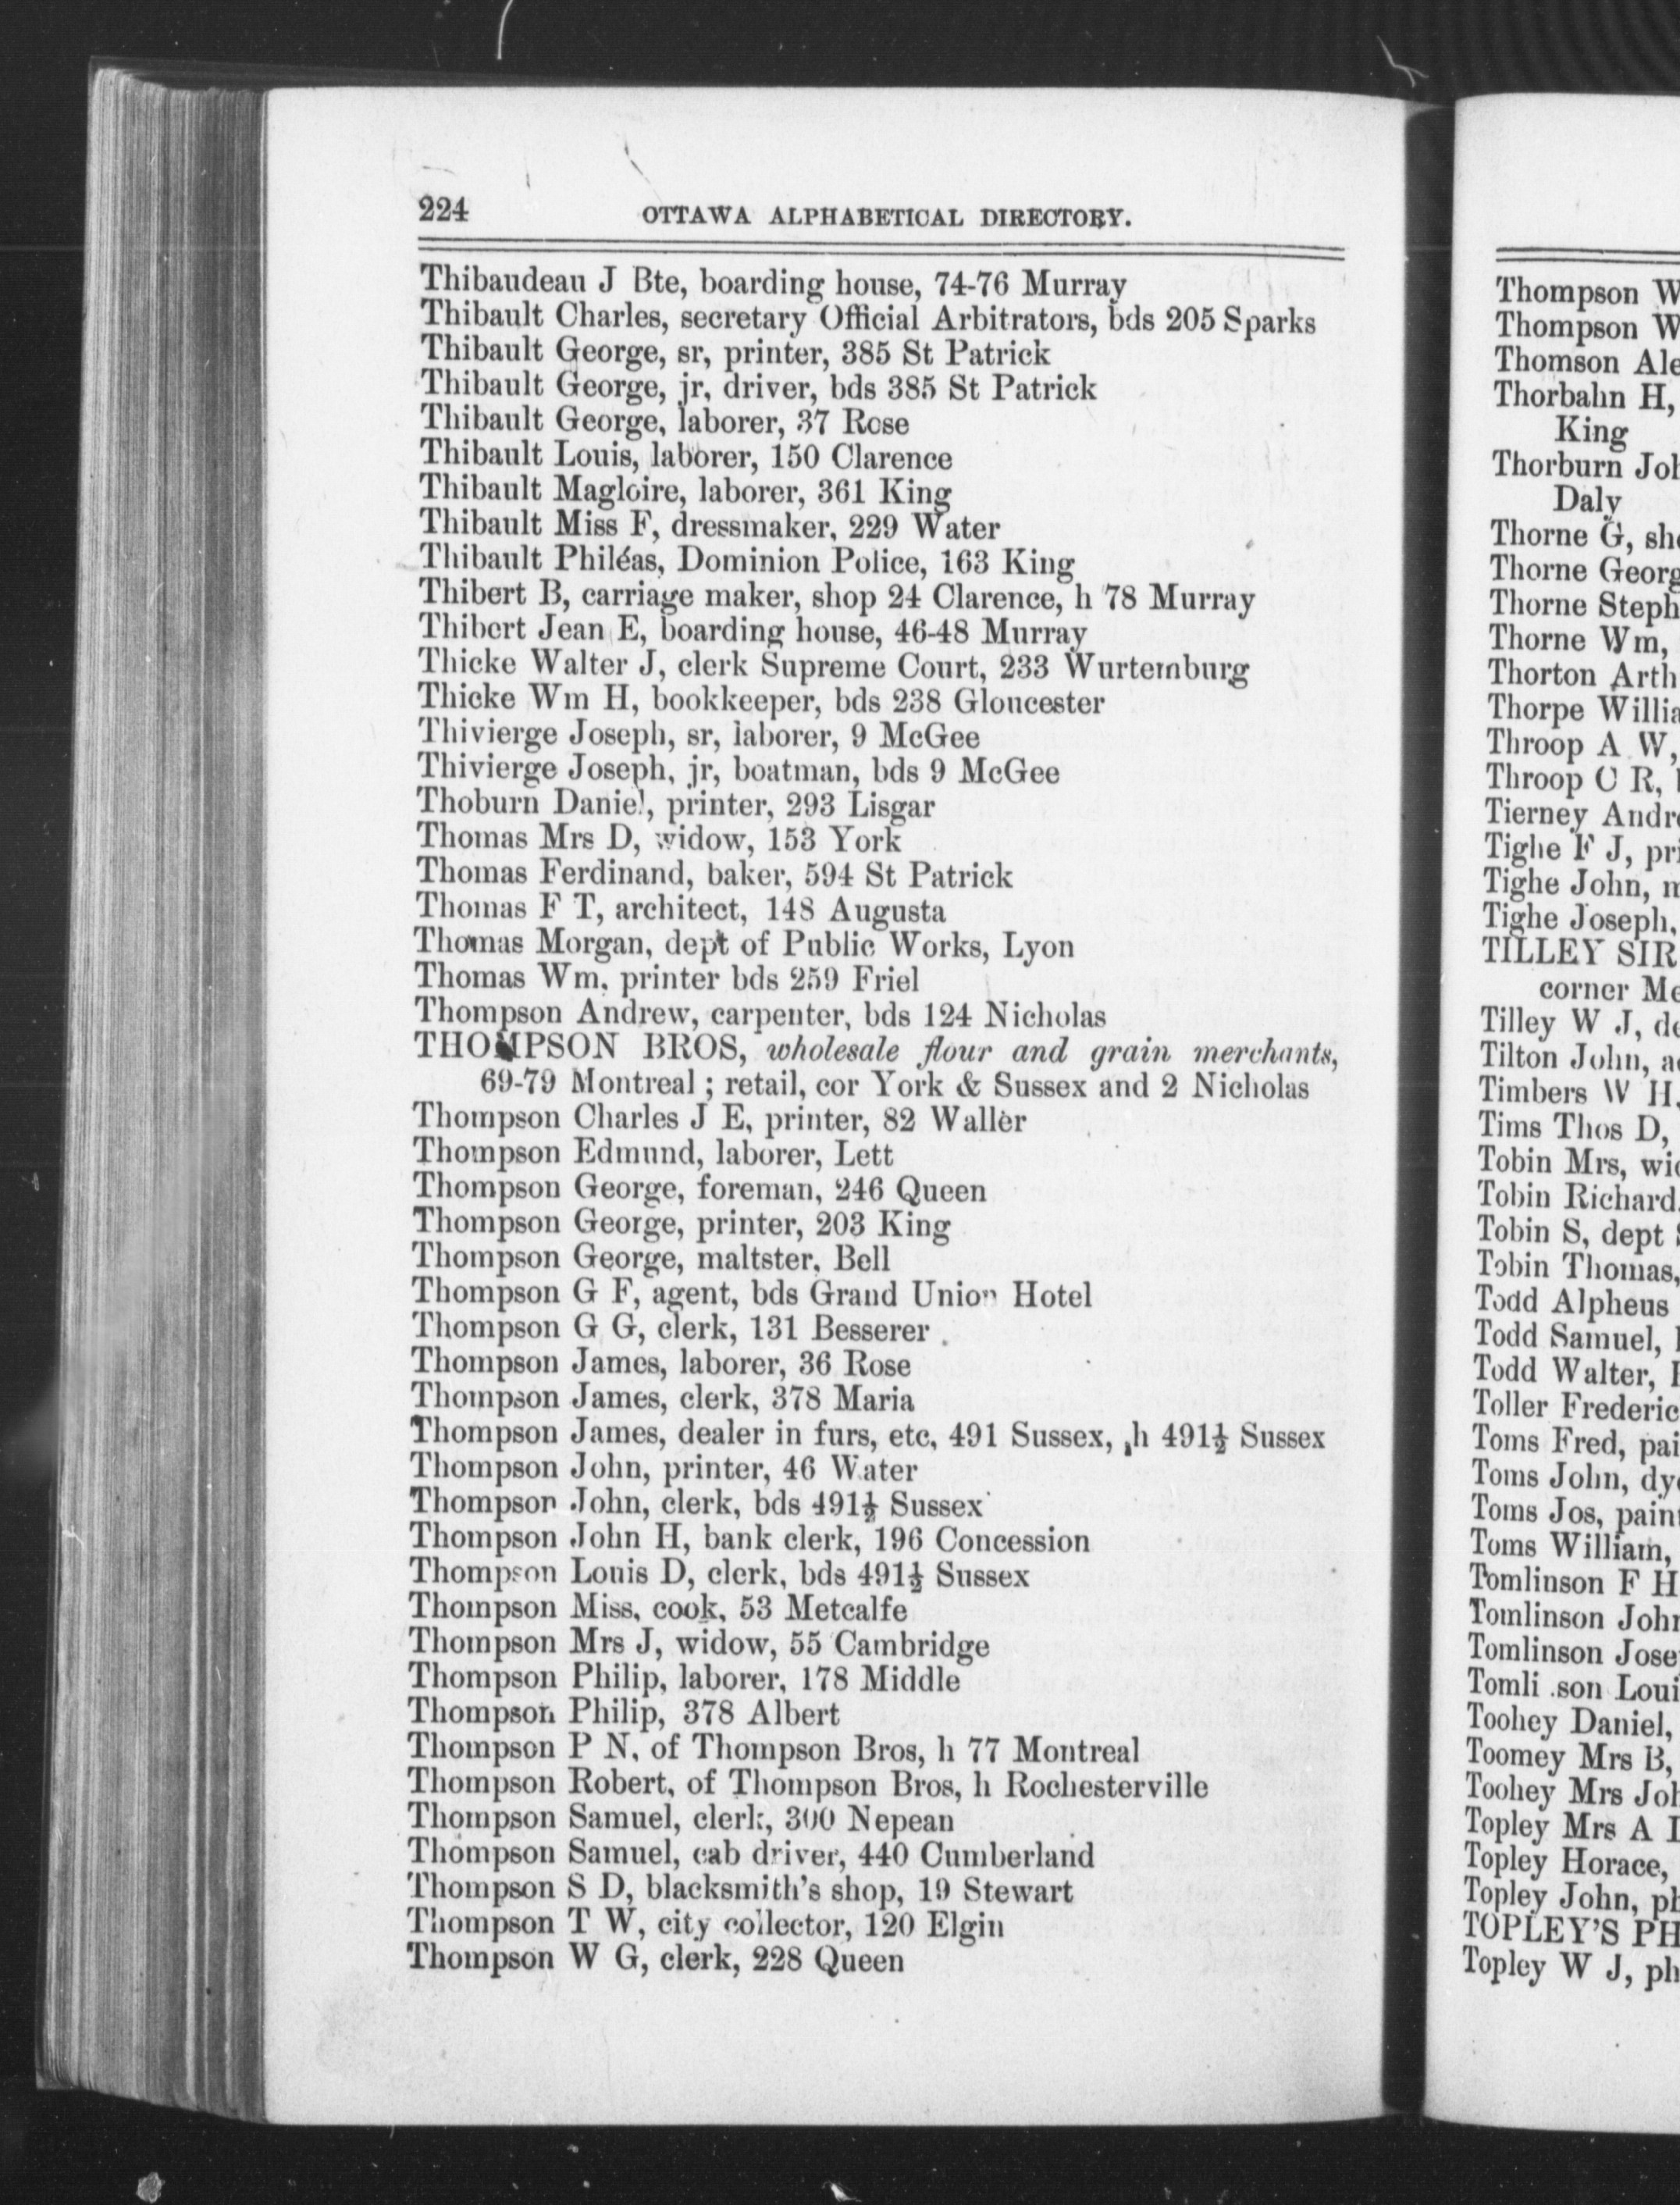 224 OTTAWA ALPHABETICAL DIRECTORY.
Thibaudeau J Bte, boarding house, 74-76 Murray
Thibault Charles, secretary Official Arbitrators, bds 205 Sparks
Thibault George, sr, printer, 385 St Patrick
Thibault George, jr, driver, bds 385 St Patrick
Thibault George, laborer, 37 Rose
Thibault Louis, laborer, 150 Clarence
Thibault Magloire, laborer, 361 King
Thibault Miss F, dressmaker, 229 Water
Thibault Philéas, Dominion Police, 163 King
Thibert B, carriage maker, shop 24 Clarence, h 78 Murray
Thibert Jean E, boarding house, 46-48 Murray
Thicke Walter J, clerk Supreme Court, 233 Wurtemburg
Thicke Wm H, bookkeeper, bds 238 Gloucester
Thivierge Joseph, sr, laborer, 9 McGee
Thivierge Joseph, jr, boatman, bds 9 McGee
Thoburn Daniel, printer, 293 Lisgar
Thomas Mrs D, widow, 153 York
Thomas Ferdinand, baker, 594 St Patrick
Thomas F T, architect, 148 Augusta
Thomas Morgan, dept of Public Works, Lyon
Thomas Wm, printer bds 259 Friel
Thompson Andrew, carpenter, bds 124 Nicholas
THOMPSON BROS, wholesale flour and grain merchants,
69-79 Montreal ; retail, cor York & Sussex and 2 Nicholas
Thompson Charles J E, printer, 82 Waller
Thompson Edmund, laborer, Lett
Thompson George, foreman, 246 Queen
Thompson George, printer, 203 King
Thompson George, maltster, Bell
Thompson G F, agent, bds Grand Union Hotel
Thompson G G, clerk, 131 Besserer
Thompson James, laborer, 36 Rose
Thompson James, clerk, 378 Maria
Thompson James, dealer in furs, etc, 491 Sussex, h 491½ Sussex
Thompson John, printer, 46 Water
Thompson John, clerk, bds 491½ Sussex
Thompson John H, bank clerk, 196 Concession
Thompson Louis D, clerk, bds 491½ Sussex
Thompson Miss, cook, 53 Metcalfe
Thompson Mrs J, widow, 55 Cambridge
Thompson Philip, laborer, 178 Middle
Thompson Philip, 378 Albert
Thompson P N, of Thompson Bros, h 77 Montreal
Thompson Robert, of Thompson Bros, h Rochesterville
Thompson Samuel, clerk, 300 Nepean
Thompson Samuel, cab driver, 440 Cumberland
Thompson S D, blacksmith's shop, 19 Stewart
Thompson T W, city collector, 120 Elgin
Thompson W G, clerk, 228 Queen
Thompson W
Thompson W
Thomson
Thorbahn H,
King
Thorburn
Daly
Thorne G,
Thorne
Thorne
Thorne Wm,
Thorton
Thorpe
Throop A W,
Throop C R,
Tierney
Tighe F J,
Tighe John,
Tighe Joseph,
TILLEY SIR
corner
Tilley W J,
Tilton John,
Timbers W H,
Tims Thos D,
Tobin Mrs,
Tobin Richard,
Tobin S, dept
Tobin Thomas,
Todd Alpheus
Todd Samuel,
Todd Walter,
Toller
Toms Fred,
Toms John,
Toms Jos,
Toms William,
Tomlinson F H
Tomlinson
Tomlinson
Tomli .son
Toohey Daniel,
Toomey Mrs B,
Toohey Mrs
Topley Mrs A
Topley Horace,
Topley John,
TOPLEY'S
Topley W J,